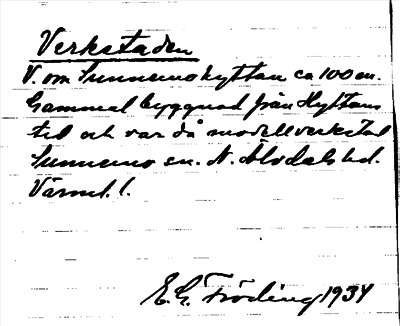 Verkstaden
V. om Sunnemohyttan ca 100 m.
Gammal byggnad från Hyttans
tid och var då modellverkstad
Sunnemo sn. N. Älvdals hd.
Värml. l.
E. G. Fröding 1934